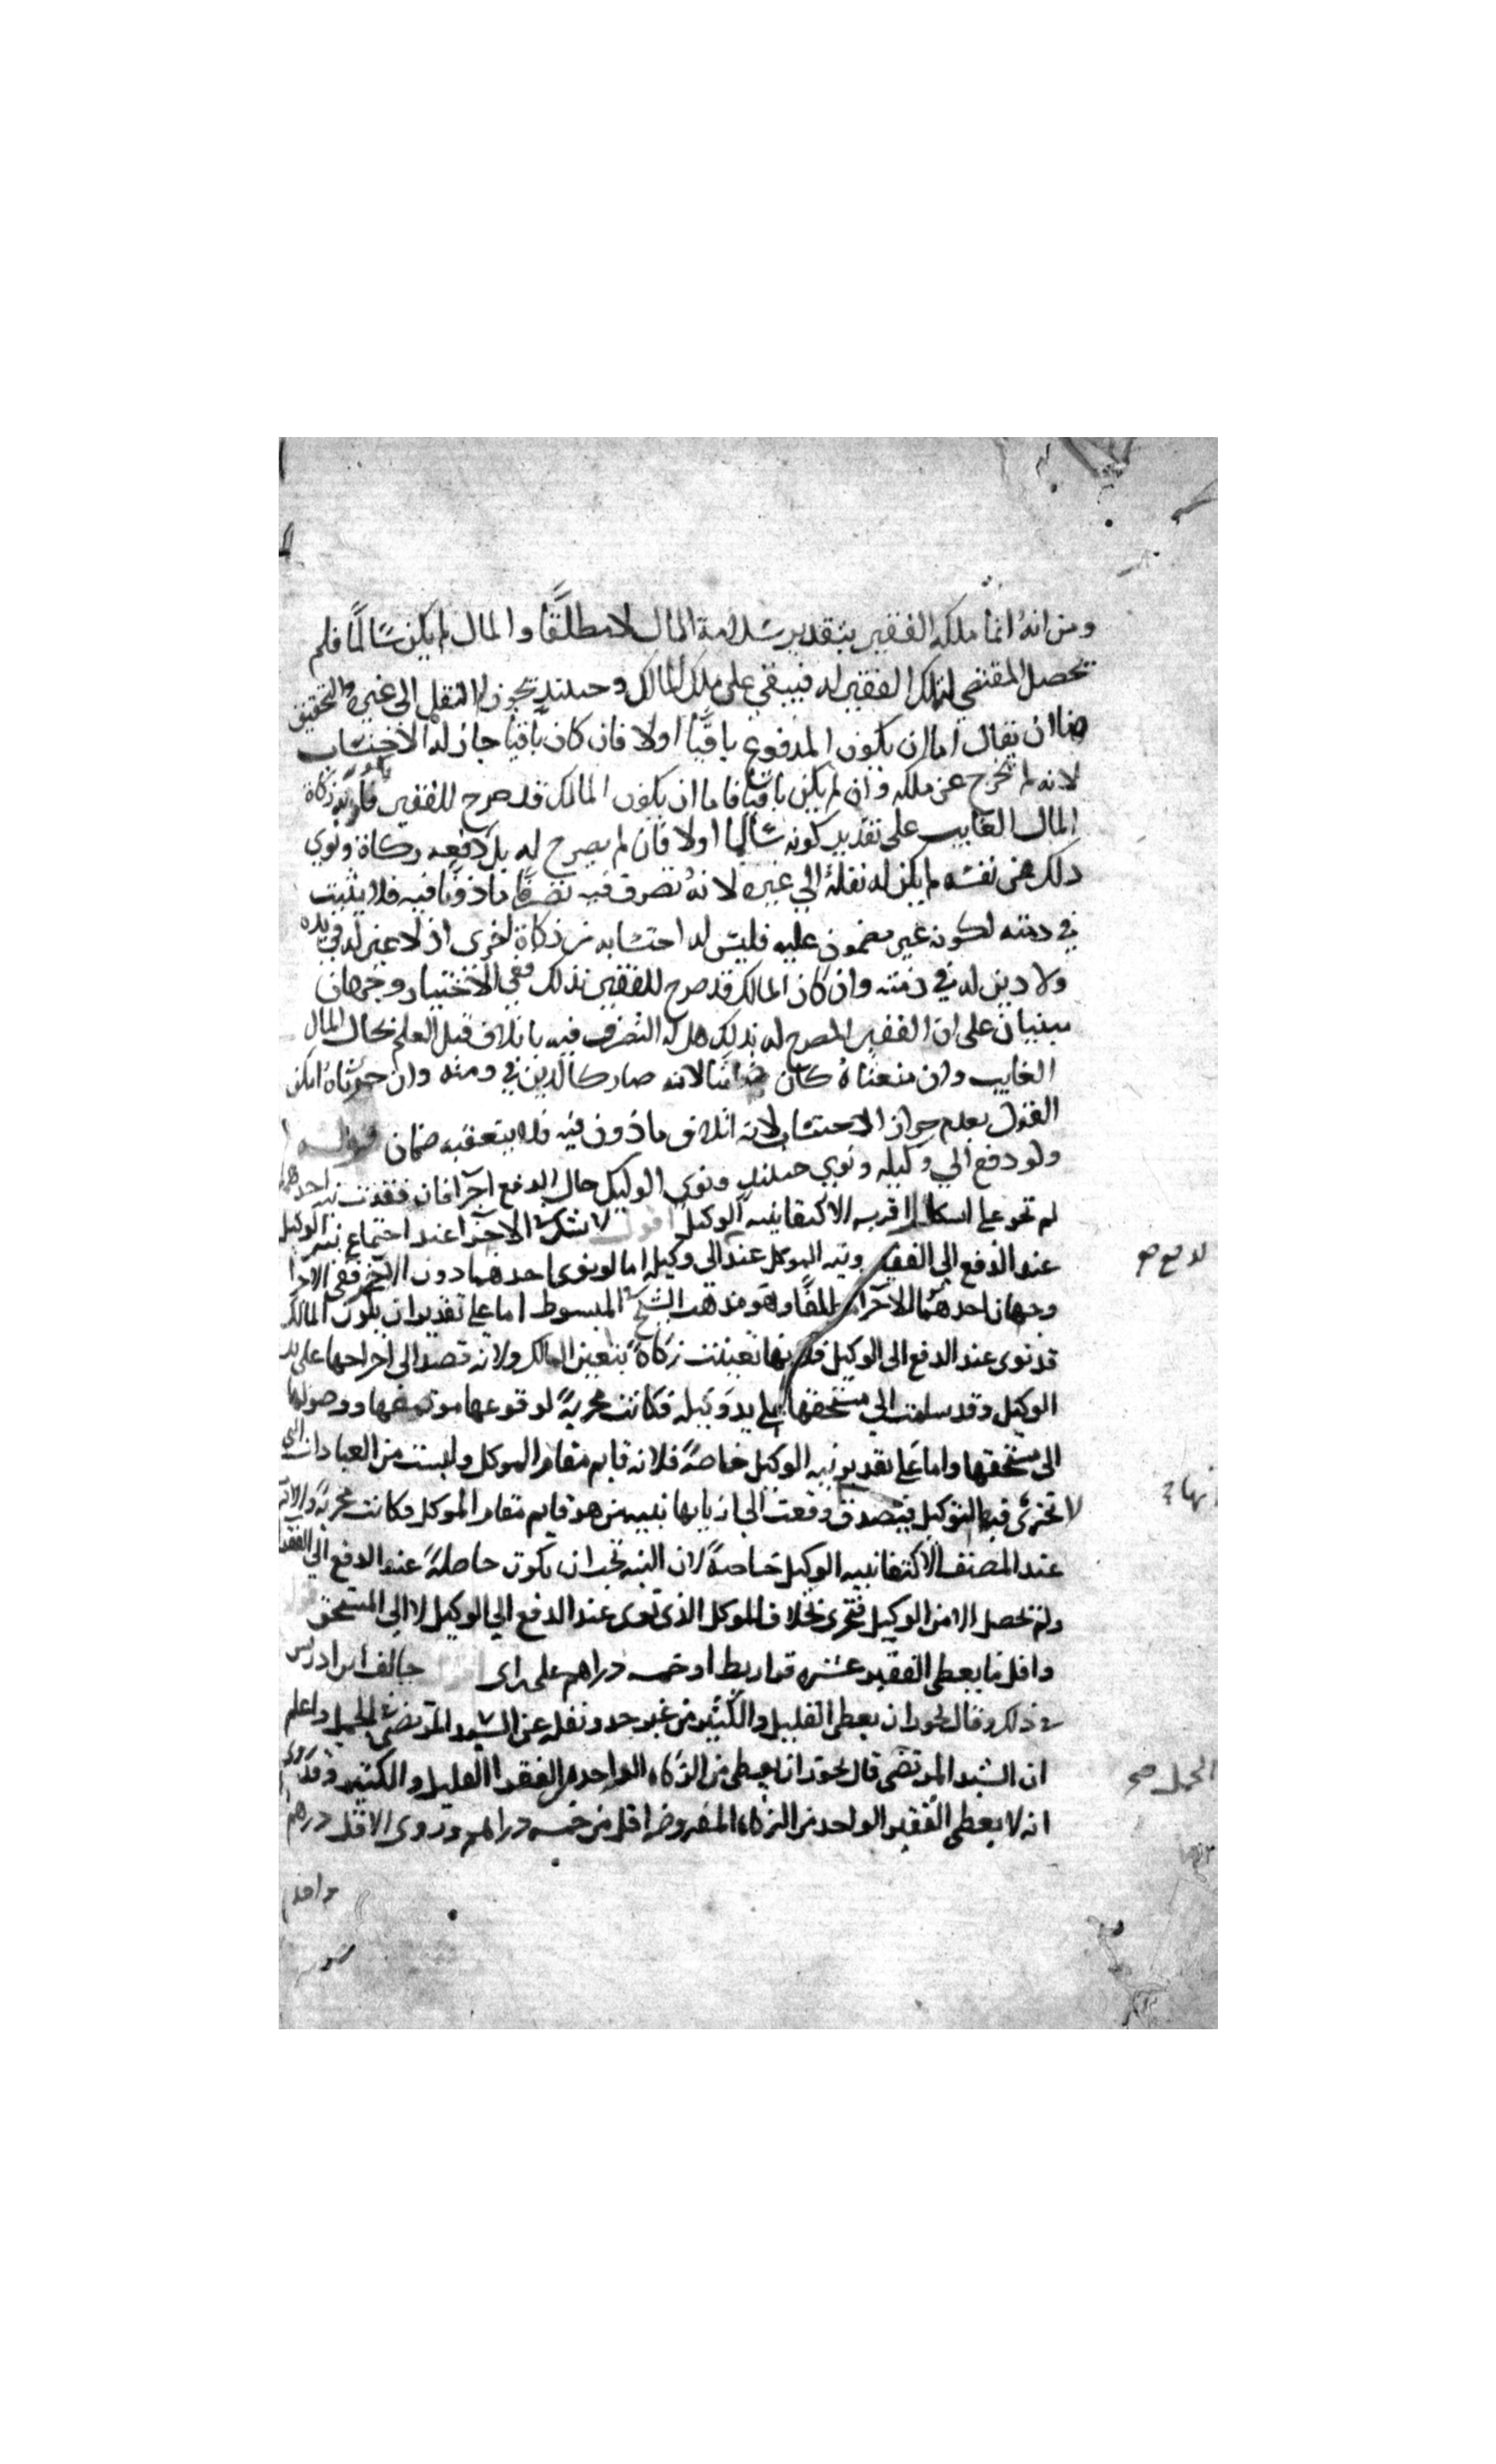 ومن انه انما ملكه الفقير بتقدير سلامة المال لا مطلقًا والمال لم يكن سالمًا فلم
يحصل المقتضي لتملك الفقير له فيبقي على ملك المالك وحينئذ يجوز له النقل الى غيره والتحقيق
هنا ان يقال اما ان يكون المدفوع باقيًا اولا فان كان باقيا جاز له الاحتساب
لانه لم يخرج عن ملكه وان لم يكن باقيا فاما ان يكون المالك قد صرح للفقير زكاة
المال الغايب على تقدير كونه سالما اولا فان لم يصرح له بل دفعه زكاة ونوي
ذلك عن نفسه لم يكن له نقله الي غيره لانه تصرف فيه تصرفًا ماذونا فيه فلا يثبت
في ذمته لكونه غير مضمون عليه فليس له احتسابه من زكاة اخرى اذ لا عين له في يده
ولا دين له في ذمته وان كان المالك قد صرح للفقير بذلك ففي الاحتساب وجهان
يبنيان على ان الفقير المصرح له بذلك هل له التصرف فيه باتلاف قبل العلم بحال المال
الغايب وان منعناه كان ضامنا لانه صار كالدين في ذمته وان جوزناه امكن
القول بعدم جواز الاحتساب لانه اتلاف ماذون فيه فلا يتعقبه ضمان قوله
ولو دفع الي وكيله ونوي حينئذ ونوي الوكيل حال الدفع اجزا فان فقدت نية احدهما
لم تجز على اشكال اقربه الاكتفا بنية الوكيل اقول لا شك في الاجزا عند اجتماع نية الوكيل
عند الدفع الى الفقير ونية الموكل عند الى وكيله اما لو نوى احدهما دون الاخر ففي الاجزا
وجهان احدهما الاجزا مطلقًا وهو مذهب الشيخ في المبسوط اما على تقدير ان يكون المالك
قد نوى عند الدفع الى الوكيل فلانها تعينت زكاة بتعين المالك ولانه قصد الى اخراجها على يد
الوكيل وقد سلمت الي مستحقها على يد وكيله فكانت مجزية لوقوعها موقعها ووصولها
الى مستحقها واما على تقدير نية الوكيل خاصة فلانه قايم مقام الموكل وليست من العبادات التي
لا تجزى فيها التوكيل فيصدق وقعت الى اربابها بنية من هو قايم مقام الموكل فكانت مجزية والاقرب
عند المصنف الاكتفا بنية الوكيل خاصة لان النية تجب ان تكون حاصلة عند الدفع الي الفقير
ولم تحصل الا من الوكيل فتجزى بخلاف الموكل الذى نوى عند الدفع الي الوكيل لا الى المستحق قوله
واقل ما يعطى الفقير عشرة قراريط او خمسة دراهم على راى اقول خالف ابن ادريس
في ذلك وقال يجوز ان يعطى القليل والكثير من غير حد ونقله عن السيد المرتضى في الجمل واعلم
ان السيد المرتضى قال يجوز ان يعطى من الزكاه الواحد من الفقرا القليل والكثير وقد روى
انه لا يعطى الفقير الواحد من الزكاه المفروضه اقل من خمسة دراهم وروى الاقل درهم
واحد
الدفع صح
نهاية
الجمل صح